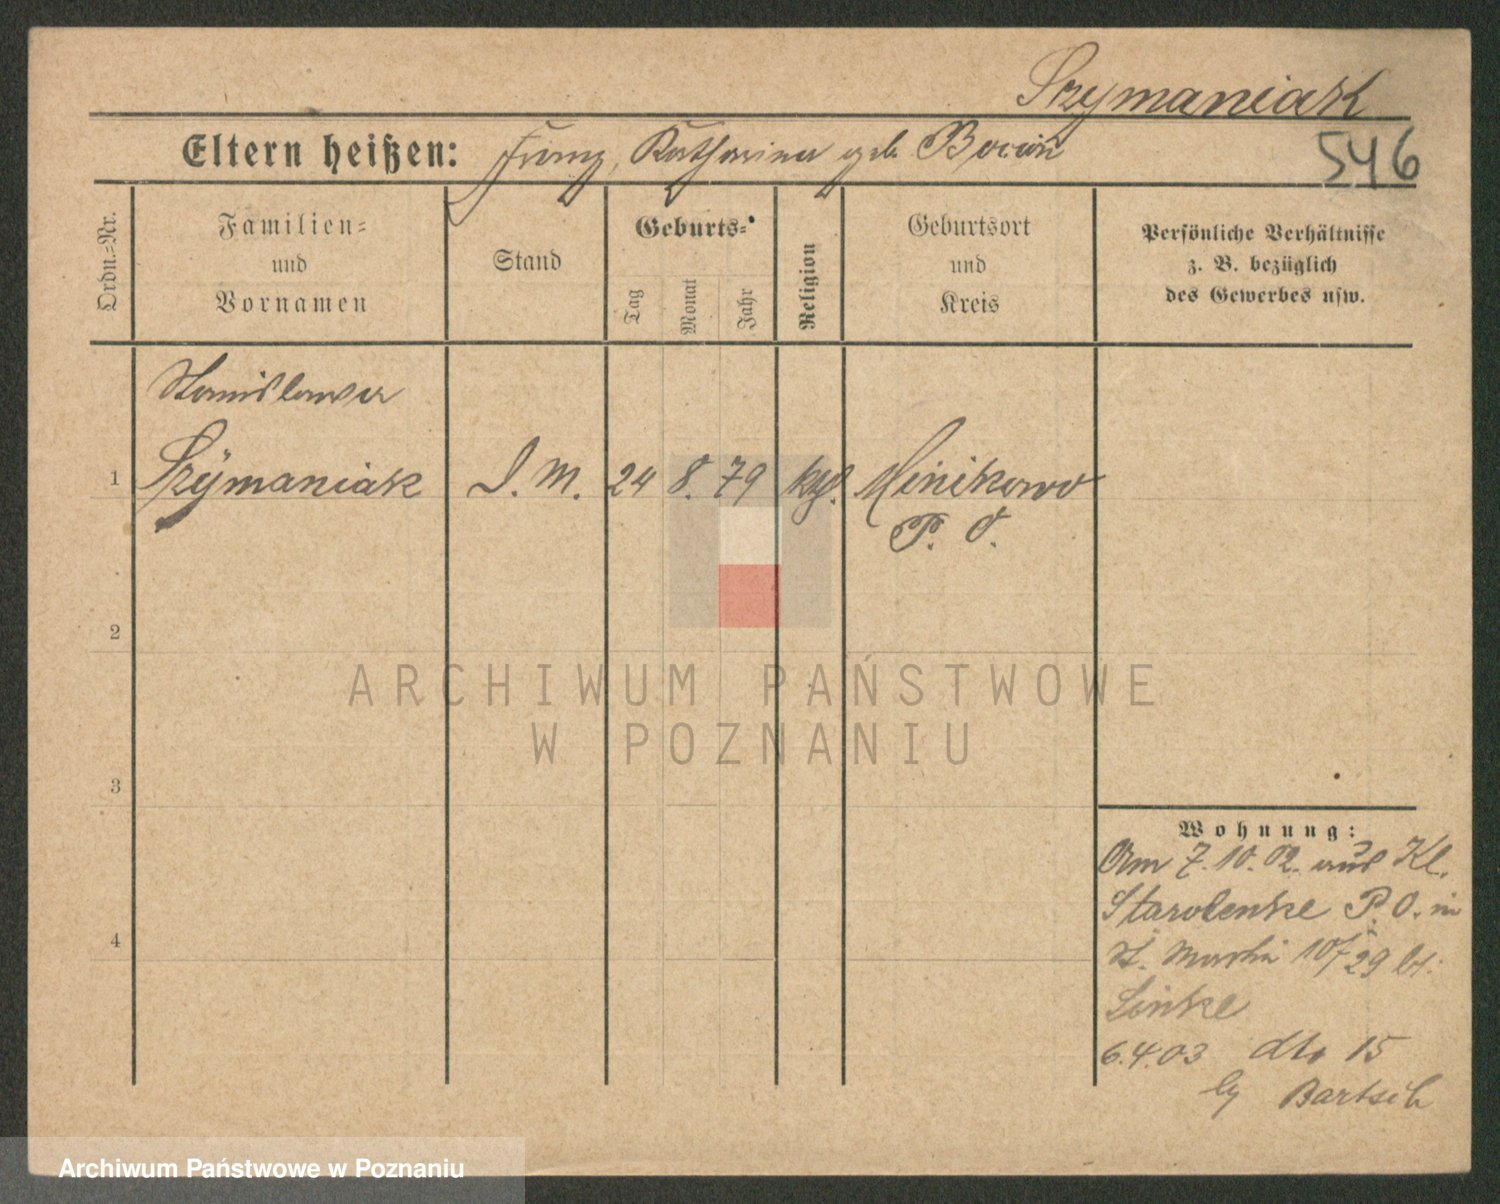 Szymaniak
Eltern heißen: Franz, Katharina geb. Bocian
546
Ordn.-Nr.
Familien-
und
Vornamen
Stand
Geburts-
Tag
Monat
Jahr
Religion
Geburtsort
und
Kreis
Persönliche Verhältnisse
z. B. bezüglich
des Gewerbes usw.
Stanislawa
1 Szymaniak D. M. 24 8. 79 kath. Minikowo
P. O.
2
3
4
ARCHIWUM PAŃSTWOWE
W POZNANIU
Wohnung:
Am 7.10.02. aus Kl.
Starolenke P. O. in
St. Martin 29 bei
Linke
6.4.03 dto 15
by Bartsch
Archiwum Państwowe w Poznaniu